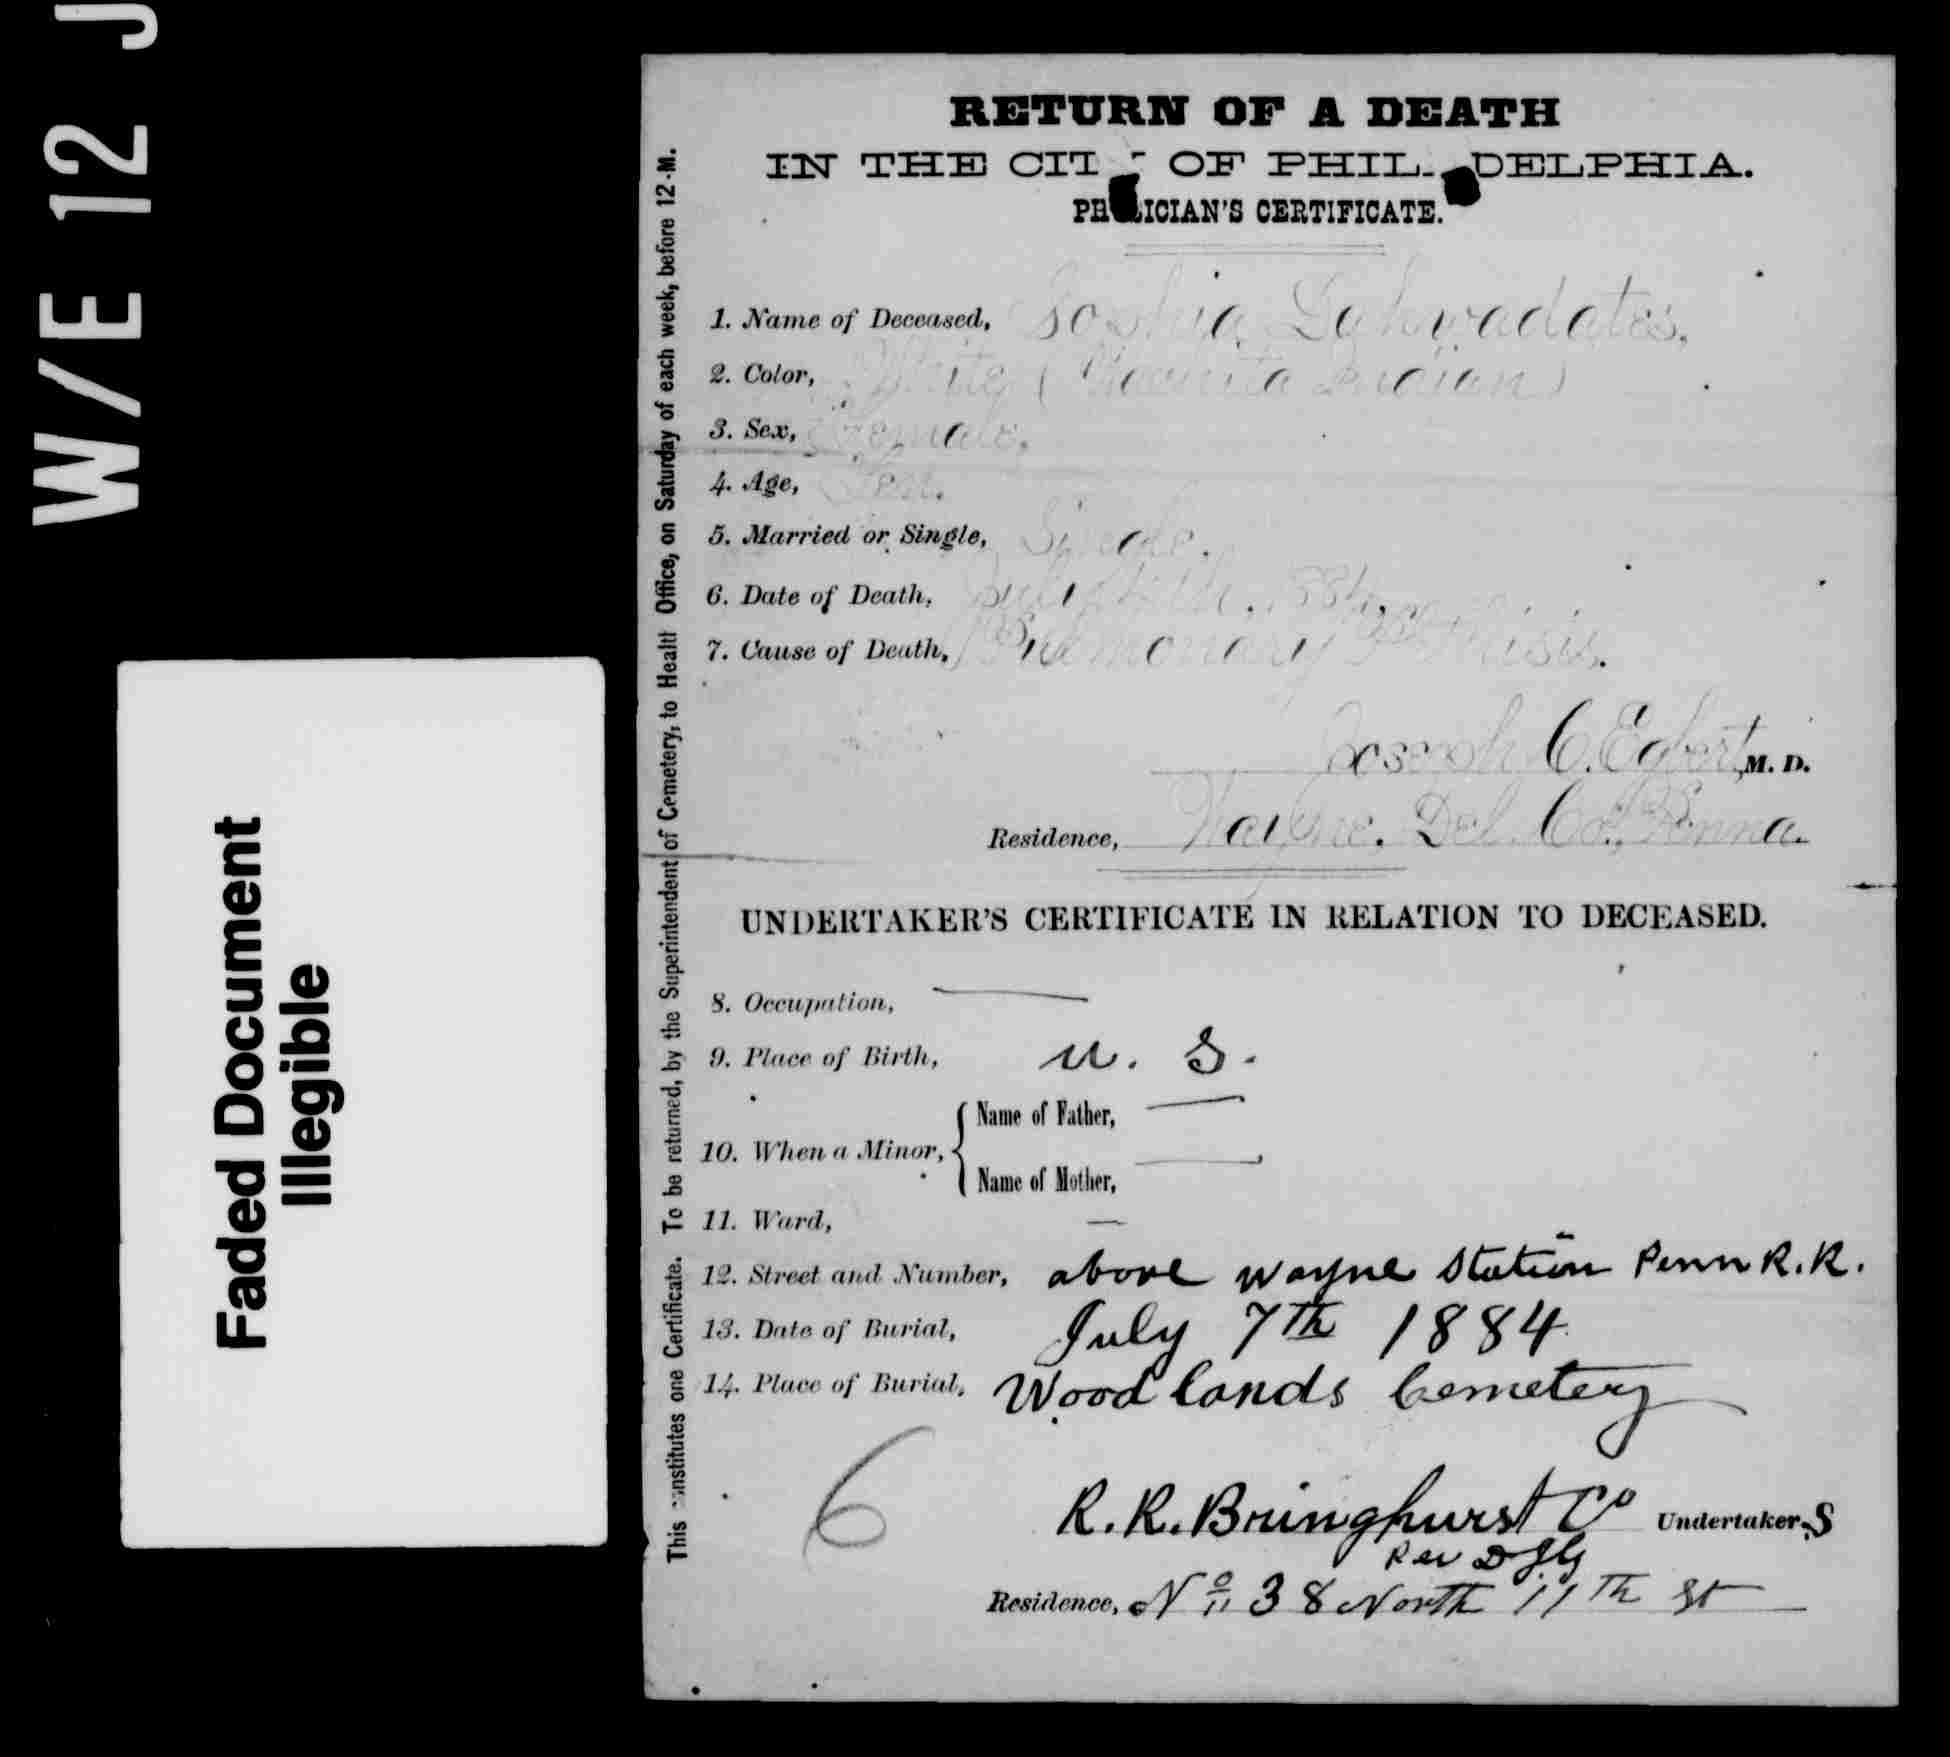 W/E 12 J
Faded Document
Illegible
RETURN OF A DEATH
IN THE CIT OF PHIL DELPHIA.
PH ICIAN'S CERTIFICATE.
1. Name of Deceased, Sophia
2. Color, White ( Indian)
3. Sex, Female,
4. Age, Ten.
5. Married or Single, Single.
6. Date of Death, July
7. Cause of Death, Pulmonary Phthisis.
Joseph C. Egbert, M. D.
Residence, Wayne. Del. Co., Penna.
UNDERTAKER'S CERTIFICATE IN RELATION TO DECEASED.
8. Occupation, —
9. Place of Birth, U. S.
10. When a Minor, { Name of Father, —
Name of Mother, —
11. Ward, —
12. Street and Number, above Wayne Station Penn R.R.
13. Date of Burial, July 7th 1884
14. Place of Burial, Woodlands Cemetery
6
R. R. Bringhurst Co Undertaker,S
Per
Residence, No 38 North 11th St
This nstitutes one Certificate. To be returned, by the Superintendent of Cemetery, to Healt Office, on Saturday of each week, before 12 M.